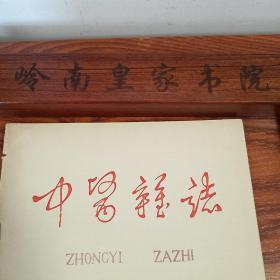 岭南皇家书院
中醫雜誌
ZHONGYI ZAZHI